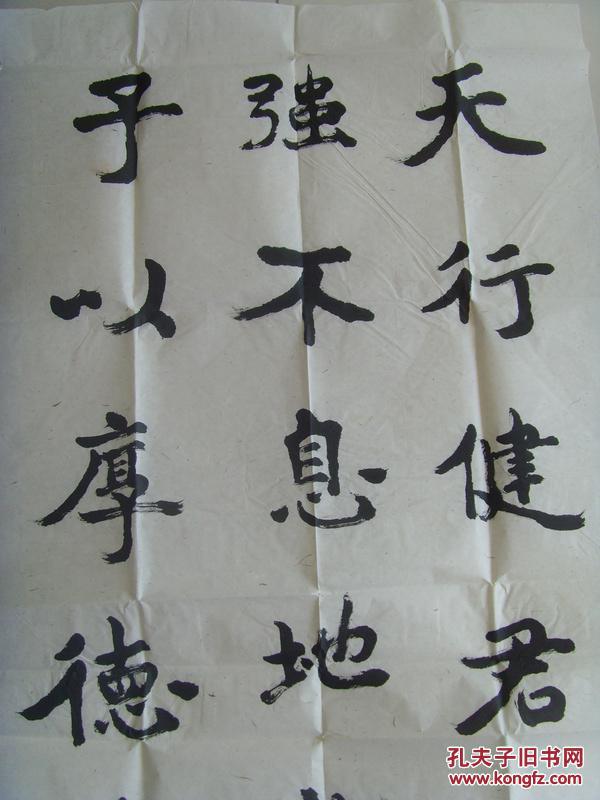 天行健君
強不息地
子以厚德
孔夫子旧书网
www.kongfz.com